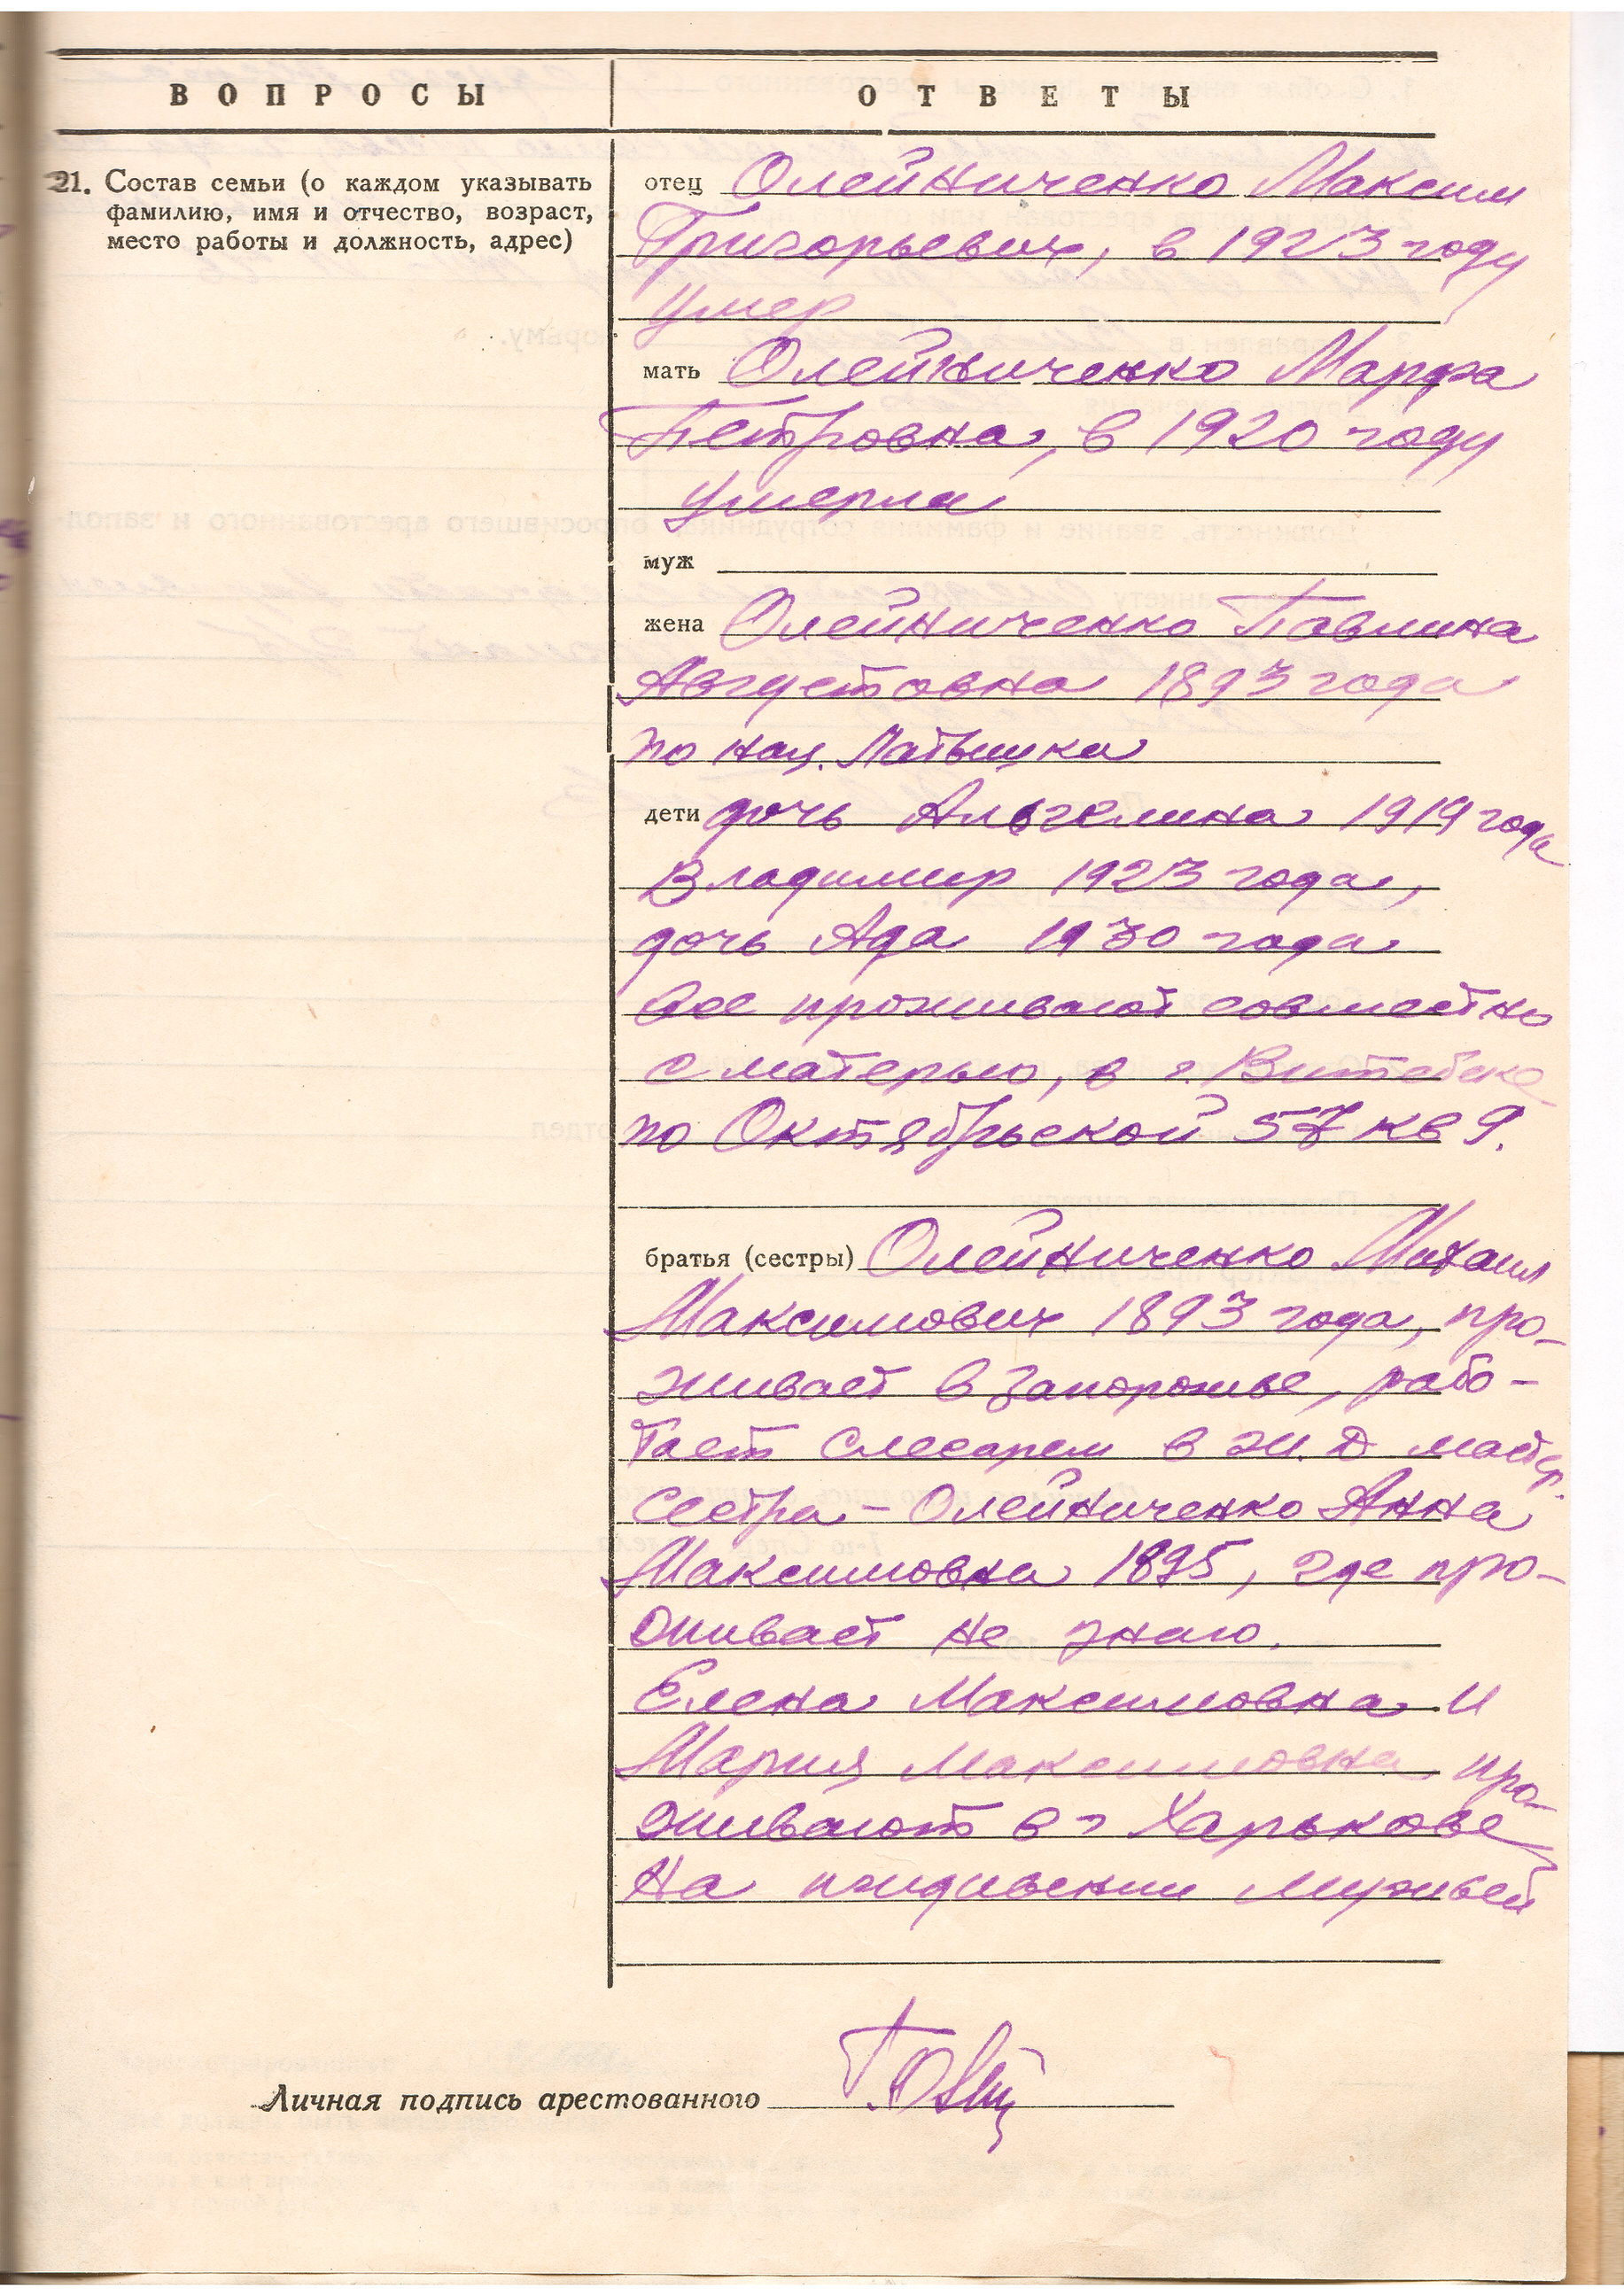 ВОПРОСЫ
ОТВЕТЫ
21. Состав семьи (о каждом указывать
фамилию, имя и отчество, возраст,
место работы и должность, адрес)
отец Олейниченко Максим
Григорьевич, в 1923 году
умер
мать Олейниченко Марфа
Петровна, в 1920 году
умерла
муж
жена Олейниченко Павлина
Августовна 1893 года
по нац. Латышка
дети дочь Альгелина 1919 года
Владимир 1923 года,
дочь Ада 1930 года
Все проживают совместно
с матерью, в г. Витебске
по Октябрьской 57 кв 9.
братья (сестры) Олейниченко Михаил
Максимович 1893 года, про-
живает в Запорожье, рабо-
тает слесарем в Ж.Д мастер.
Сестра - Олейниченко Анна
Максимовна 1895, где про-
живает не знаю.
Елена Максимовна и
Мария Максимовна про-
живают в г Харькове
На иждивении мужьей
Личная подпись арестованного